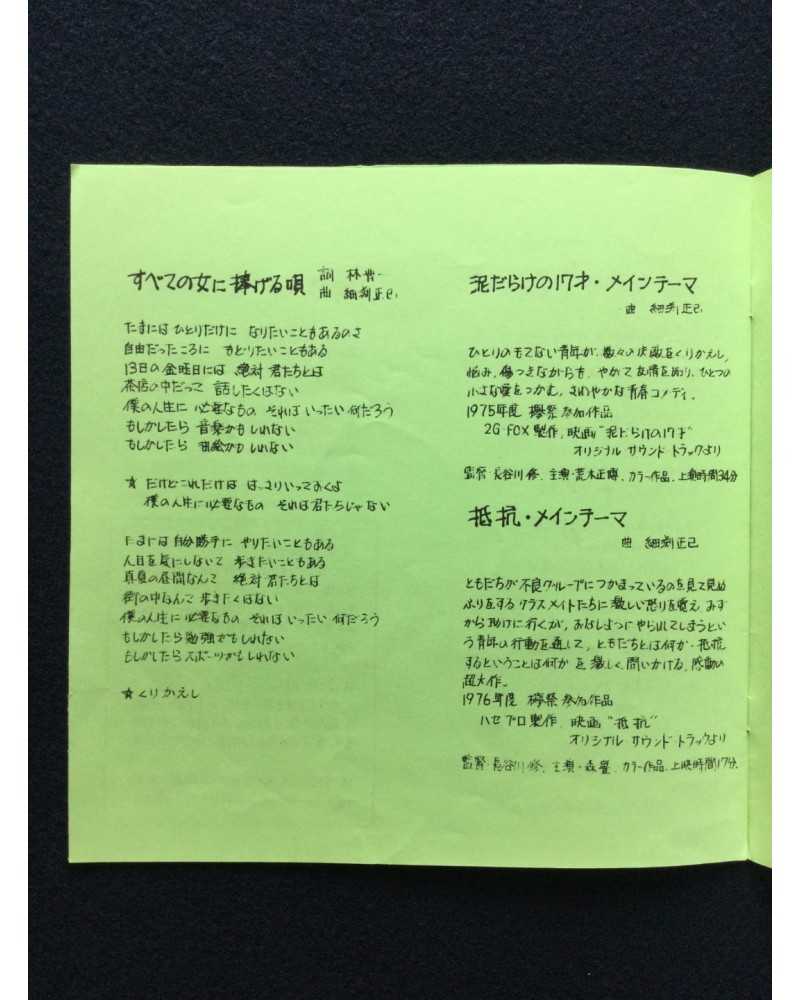 すべての女に捧げる唄
詞 林
曲 細渕正己
たまには ひとりだけに なりたいこともあるのさ
自由だったころに もどりたいこともある
13日の金曜日には 絶対 君たちとは
茶店の中だって 話したくはない
僕の人生に 必要なもの それは いったい 何だろう
もしかしたら 音楽かもしれない
もしかしたら 映画かもしれない
★ だけどこれだけは はっきりいっておくよ
僕の人生に必要なもの それは君たちじゃない
たまには自分勝手に やりたいこともある
人目を気にしないで 歩きたいこともある
真夏の昼間なんて 絶対 君たちとは
街の中なんて 歩きたくはない
僕の人生に 必要なもの それは いったい 何だろう
もしかしたら勉強かもしれない
もしかしたらスポーツかもしれない
★くりかえし
泥だらけの17才・メインテーマ
曲 細渕正己
ひとりのもてない青年が、数々の失敗をくりかえし、
悩み、傷つきながらも、やがて友情を知り、ひとつの
小さな愛をつかむ、さわやかな青春コメディ。
1975年度 欅祭参加作品
2G-FOX製作、映画"泥だらけの17才"
オリジナル サウンド トラックより
監督・長谷川修、主演・荒木正博、カラー作品、上映時間34分
抵抗・メインテーマ
曲 細渕正己
ともだちが不良グループにつかまっているのを見て見ぬ
ふりをするクラスメイトたちに激しい怒りを覚え、みず
から助けに行くが、おなじようにやられてしまうとい
う青年の行動を通して、ともだちとは何か、抵抗
するということは何か を激しく問いかける、感動の
超大作。
1976年度 欅祭参加作品
ハセプロ製作、映画"抵抗"
オリジナル サウンド トラックより
監督・長谷川修、主演・森 、カラー作品、上映時間17分、